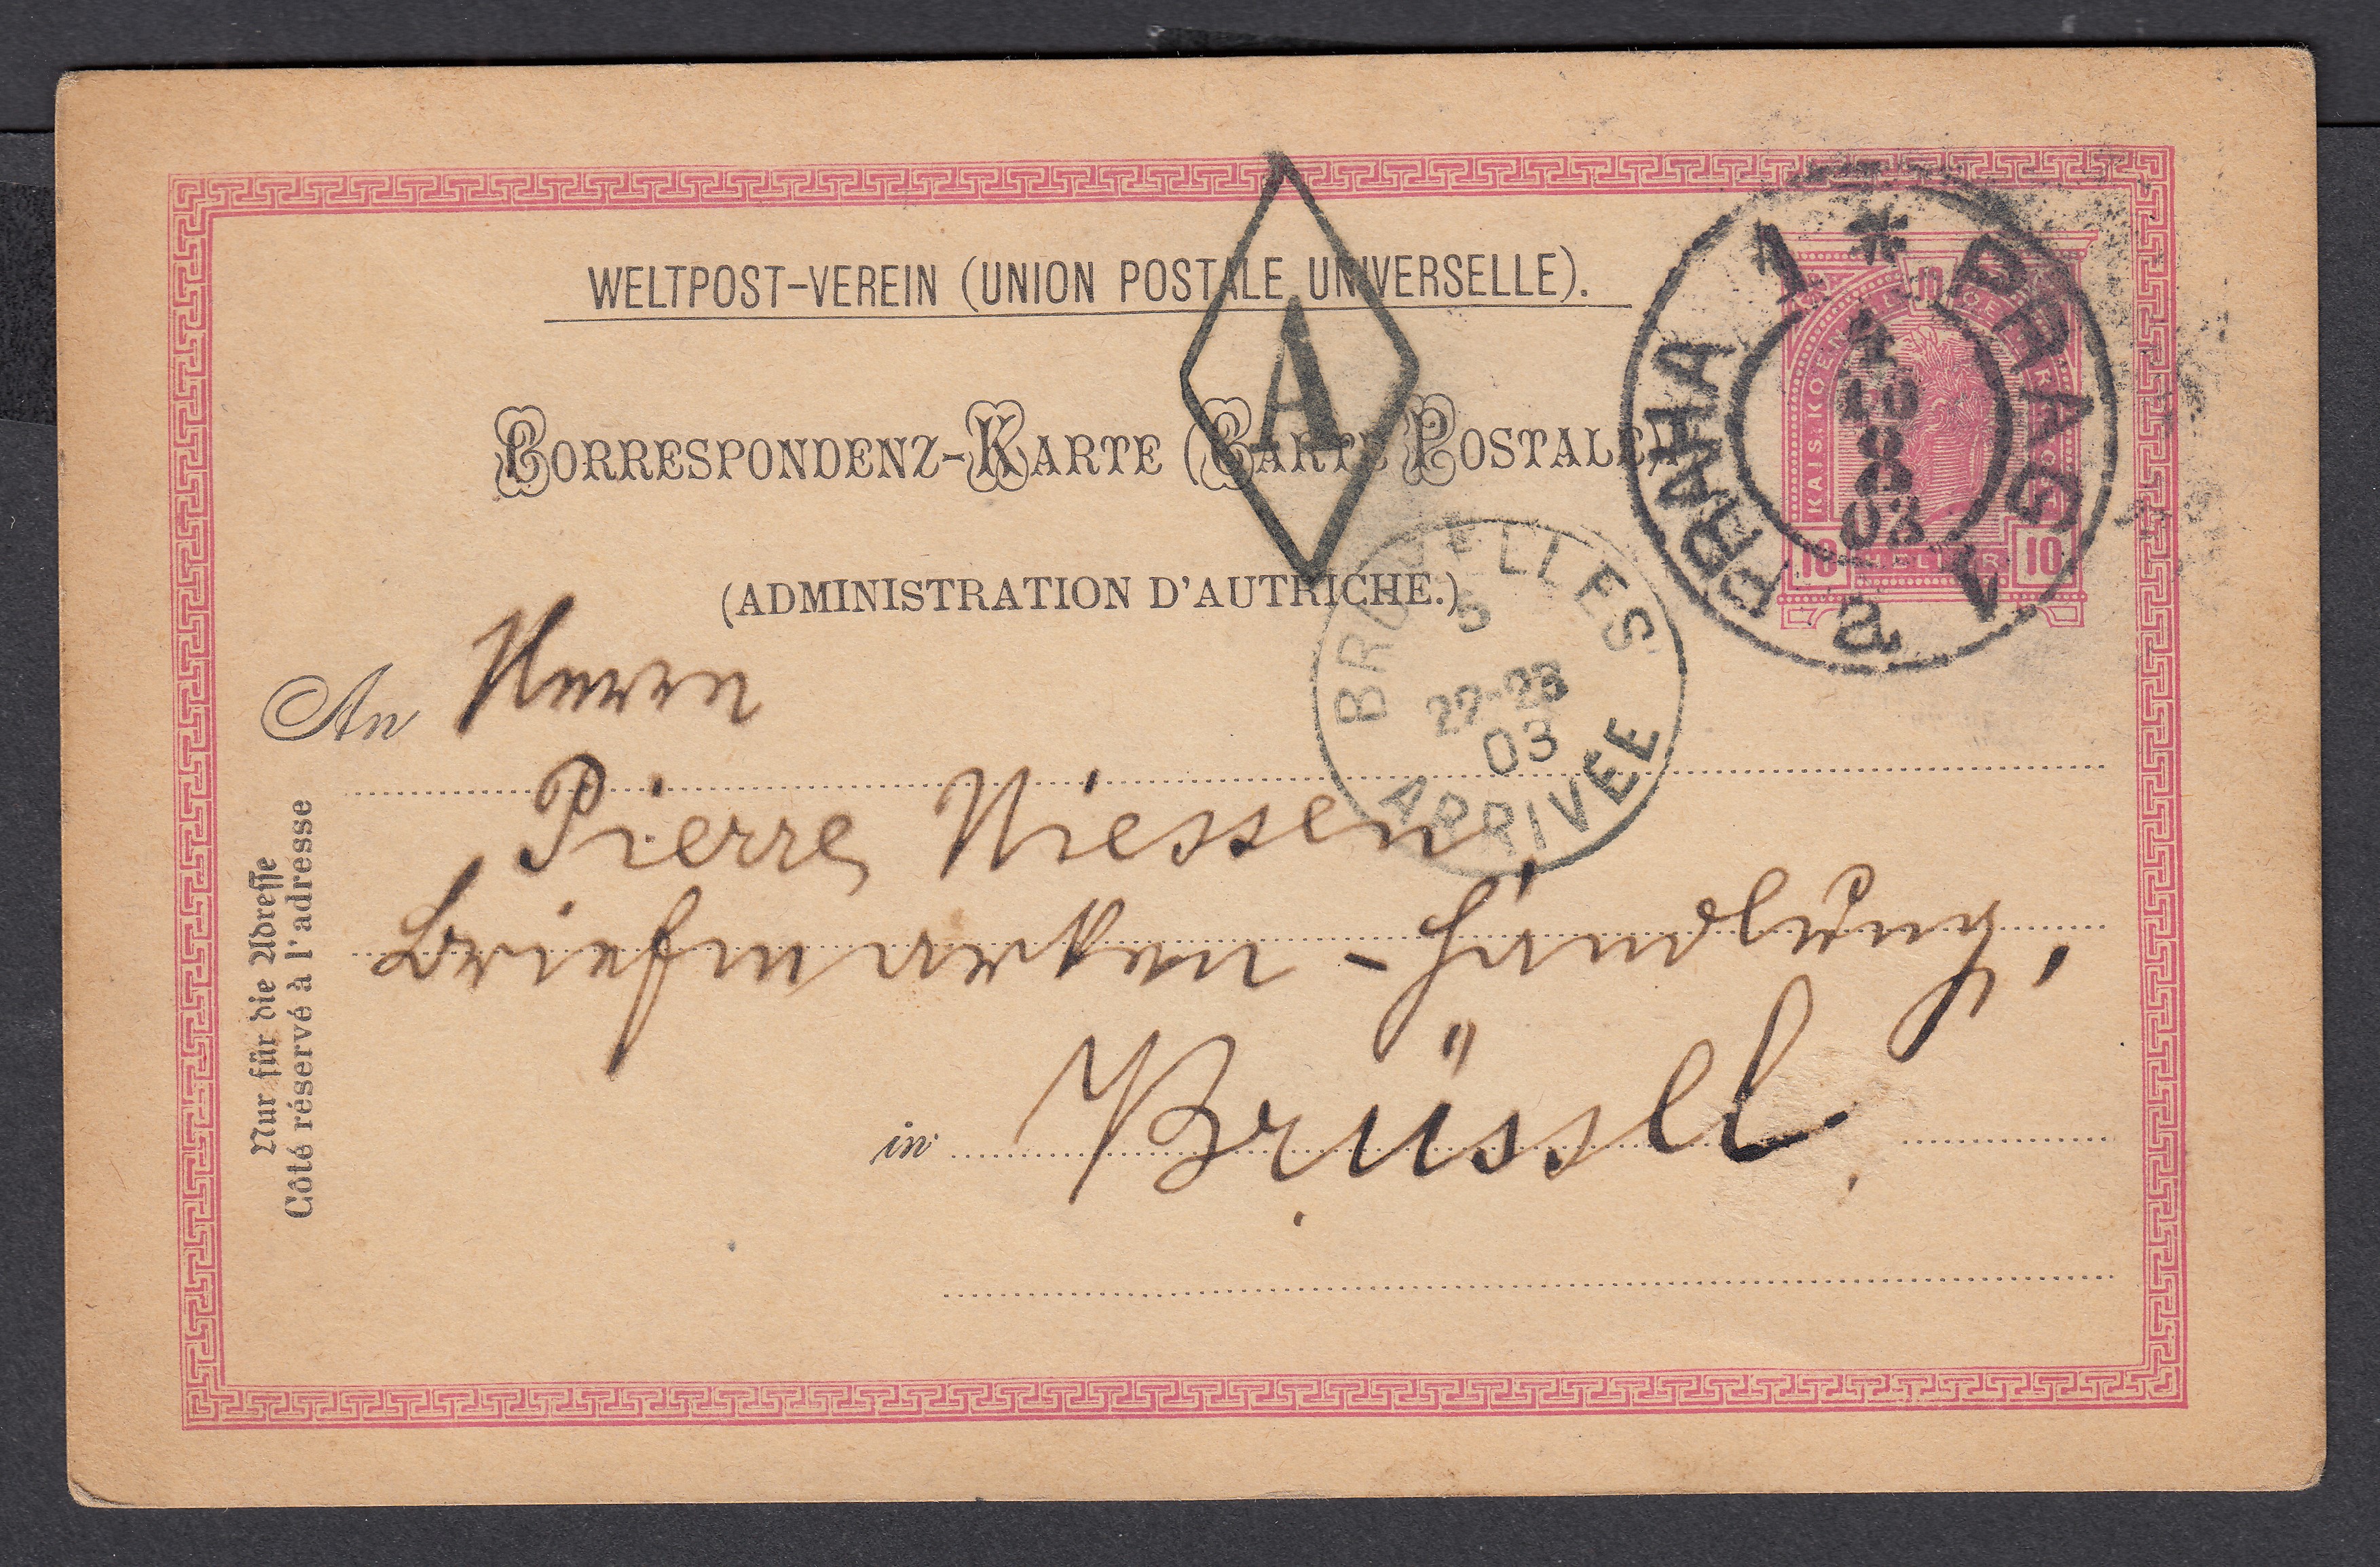 WELTPOST-VEREIN (UNION POSTALE UNIVERSELLE).
CORRESPONDENZ-KARTE (CARTE POSTALE)
(ADMINISTRATION D'AUTRICHE.)
A
PRAG 1 * PRAHA 1
a
4
10
8
03
KAIS. KOENIGL. OESTERR.
10
10 HELLER 10
BRUXELLES
5
22-23
03
ARRIVEE
An Herrn
Pierre Niessen,
Briefmarken-Handlung,
in Brüssel.
Nur für die Adresse
Côté réservé à l'adresse